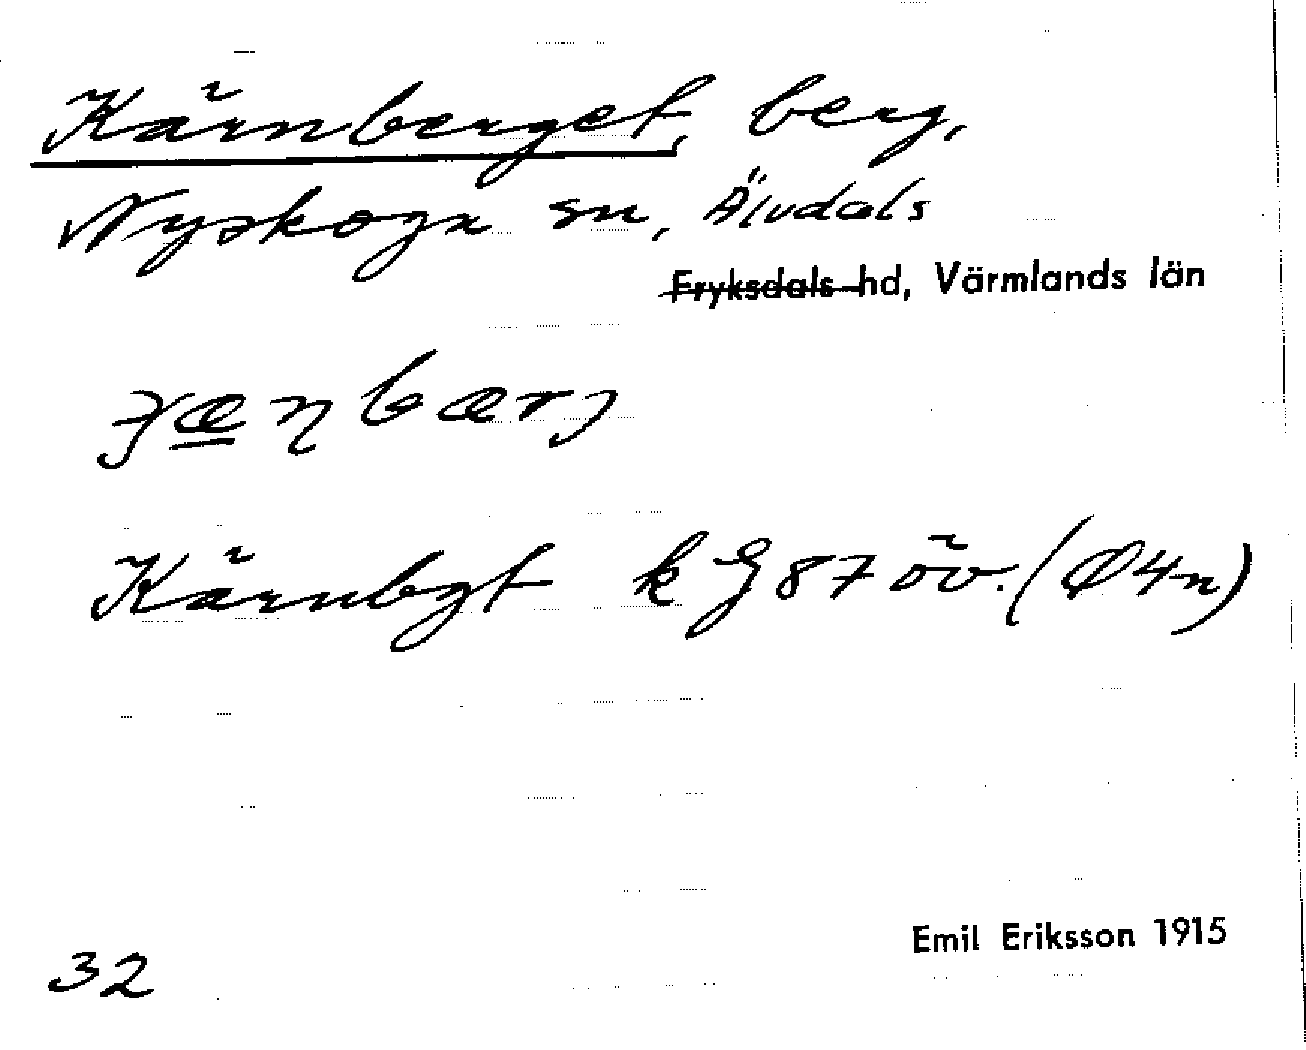 Kärnberget, berg,
Nyskoga sn, Älvdals
Fryksdals hd, Värmlands län
Kärnbgt k G 87 öv. (Ø4n)
Emil Eriksson 1915
32